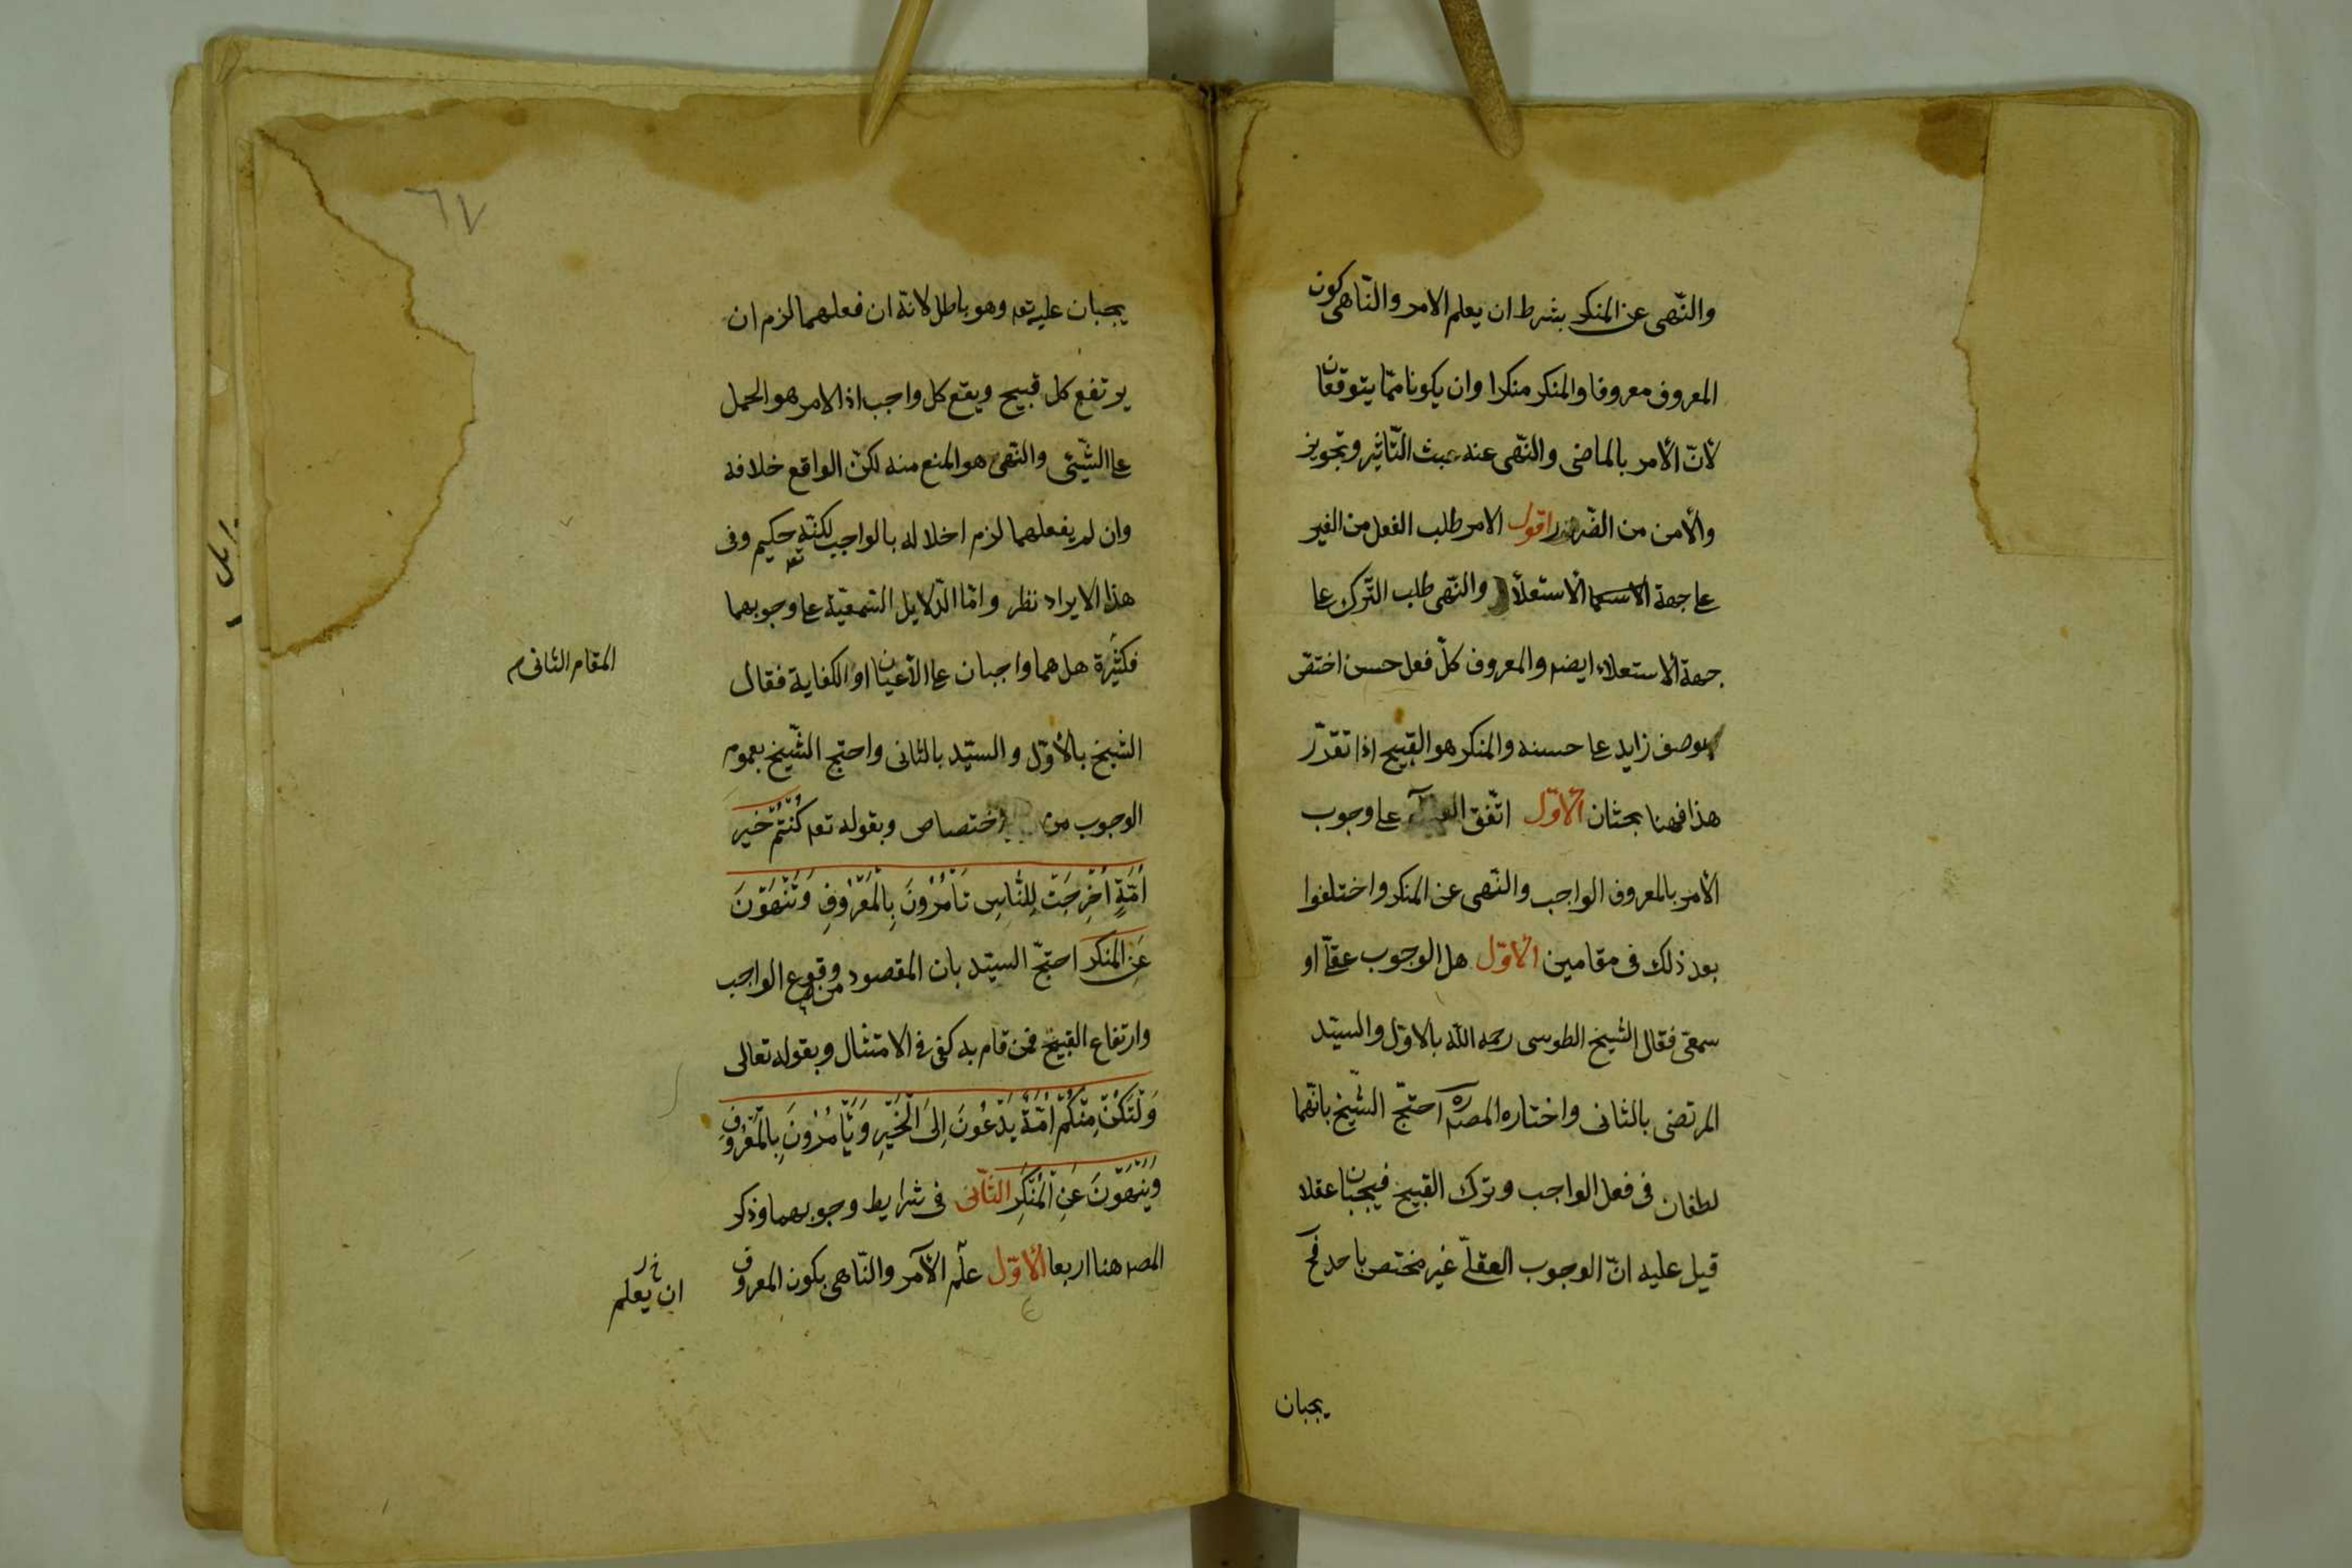 والنّهى عن المنكر بشرط ان يعلم الامر والنّاهى كون
المعروف معروفا والمنكر منكرا وان يكونا ممّا يتوقعان
لانّ الأمر بالماضى والنّهى عنه عبث التّاثير وتجويز
والأمن من الضّرر اقول الامر طلب الفعل من الغير
على جهة الأستعلاء والنّهى طلب التّرك على
جهة الأستعلاء ايضا والمعروف كلّ فعل حسن اختصّ
بوصف زايد على حسنه والمنكر هو القبيح اذا تقرّر
هذا فههنا بحثان الأوّل اتّفق العلماء على وجوب
الأمر بالمعروف الواجب والنّهى عن المنكر واختلفوا
بعد ذلك فى مقامين الأوّل هل الوجوب عقلىّ او
سمعى فقال الشّيخ الطوسى رحمه الله بالاوّل والسيّد
المرتضى بالثانى واختاره المصره احتجّ الشّيخ بانّهما
لطفان فى فعل الواجب وترك القبيح فيجبان عقلا
قيل عليه انّ الوجوب العقلىّ غير مختص باحد فح
يجبان
٦٧
يجبان عليه تعه وهو باطل لانّه ان فعلهما لزم ان
يرتفع كل قبيح ويقع كل واجب اذ الامر هو الحمل
على الشّيئى والنّهى هو المنع منه لكنّ الواقع خلافه
وان لم يفعلهما لزم اخلاله بالواجب لكنّه تعه حكيم وفى
هذا الايراد نظر وامّا الدّلايل السّمعيّة على وجوبهما
فكثيرة هل هما واجبان على الأعيان او الكفاية فقال
المقام الثانى م
الشيخ بالأوّل والسيّد بالثانى واحتج الشّيخ بعموم
الوجوب من اختصاص وبقوله تعه كُنْتُمْ خَيرَ
اُمَّةٍ اُخْرِجَتْ لِلنَّاسِ تَأمُرُونَ بِالْمَعْرُوفِ وَتَنْهَوْنَ
عَنِ المنكر احتجّ السيّد بان المقصود وقوع الواجب
وارتفاع القبيح فمن قام به كفى فى الامتثال وبقوله تعالى
وَلْتَكُنْ مِنْكُمْ اُمَّةٌ يَدْعُونَ اِلىَ الْخَيْرِ وَيَأمُرُونَ بِالْمَعْرُوفِ
وَيَنْهَوْنَ عَنِ الْمُنْكَرِ الثّانى فى شرايط وجوبهما وذكر
المصه هنا اربعا الأوّل علم الآمر والنّاهى بكون المعروف
ان يعلم